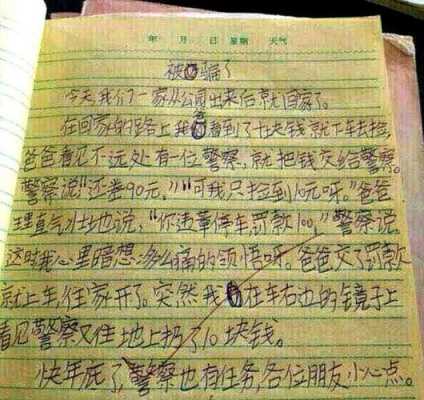 年 月 日 星期 天气
被骗了
今天,我们一家从公园出来后就回家了。
在回家的路上我爸看到了十块钱就下车去捡,
爸爸看见不远处有一位警察,就把钱交给警察。
警察说"还差90元。""可我只捡到10元呀。"爸爸
理直气壮地说,"你违章停车罚款100,"警察说。
这时我心里暗想:多么痛的领悟呀。爸爸交了罚款
就上车,往家开了。突然我在车右边的镜子上
看见警察又往地上扔了10块钱。
快年底了,警察也有任务,各位朋友小心点。